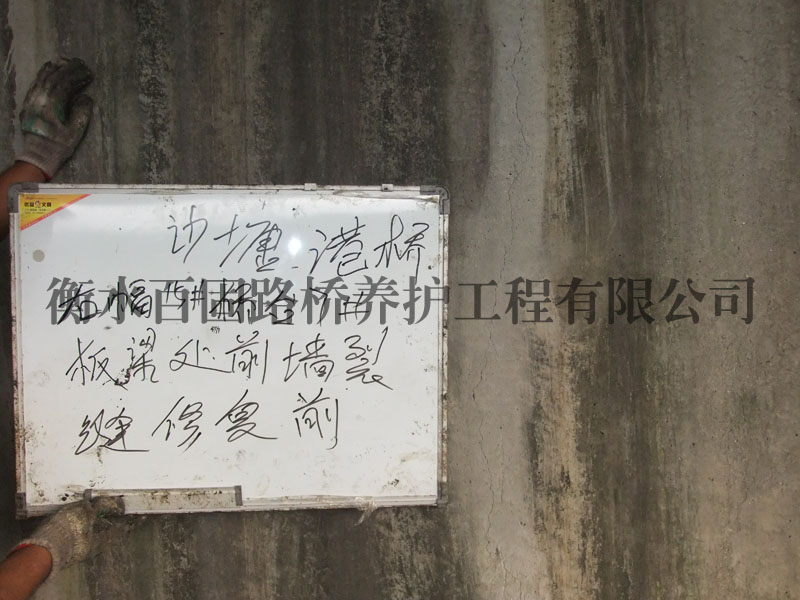 沙塘港桥
衡水百固路桥养护工程有限公司
右幅15#桥台1#
板梁处前墙裂
缝修复前